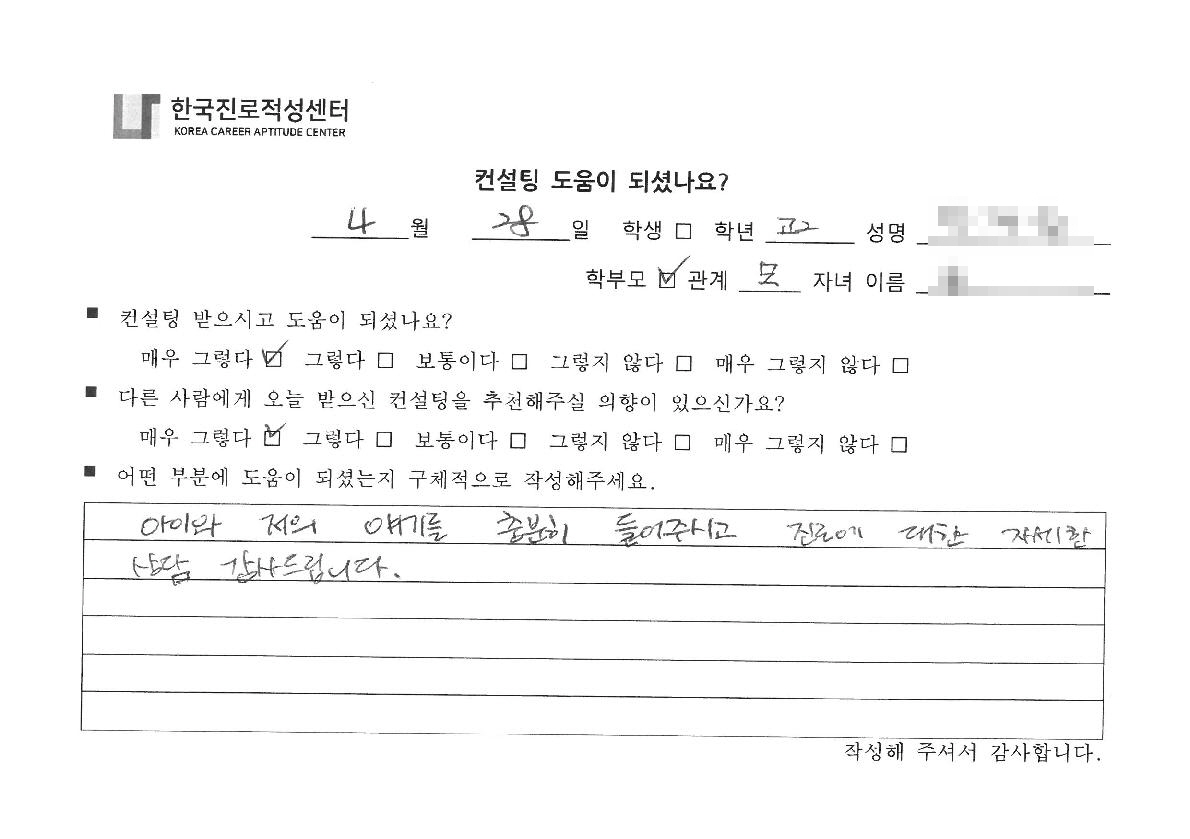 한국진로적성센터
KOREA CAREER APTITUDE CENTER
컨설팅 도움이 되셨나요?
4 월 28 일 학생 □ 학년 고2 성명
학부모 ☑ 관계 모 자녀 이름
■ 컨설팅 받으시고 도움이 되셨나요?
매우 그렇다 ☑ 그렇다 □ 보통이다 □ 그렇지 않다 □ 매우 그렇지 않다 □
■ 다른 사람에게 오늘 받으신 컨설팅을 추천해주실 의향이 있으신가요?
매우 그렇다 ☑ 그렇다 □ 보통이다 □ 그렇지 않다 □ 매우 그렇지 않다 □
■ 어떤 부분에 도움이 되셨는지 구체적으로 작성해주세요.
아이와 저의 얘기를 충분히 들어주시고 진로에 대한 자세한
상담 감사드립니다.
작성해 주셔서 감사합니다.